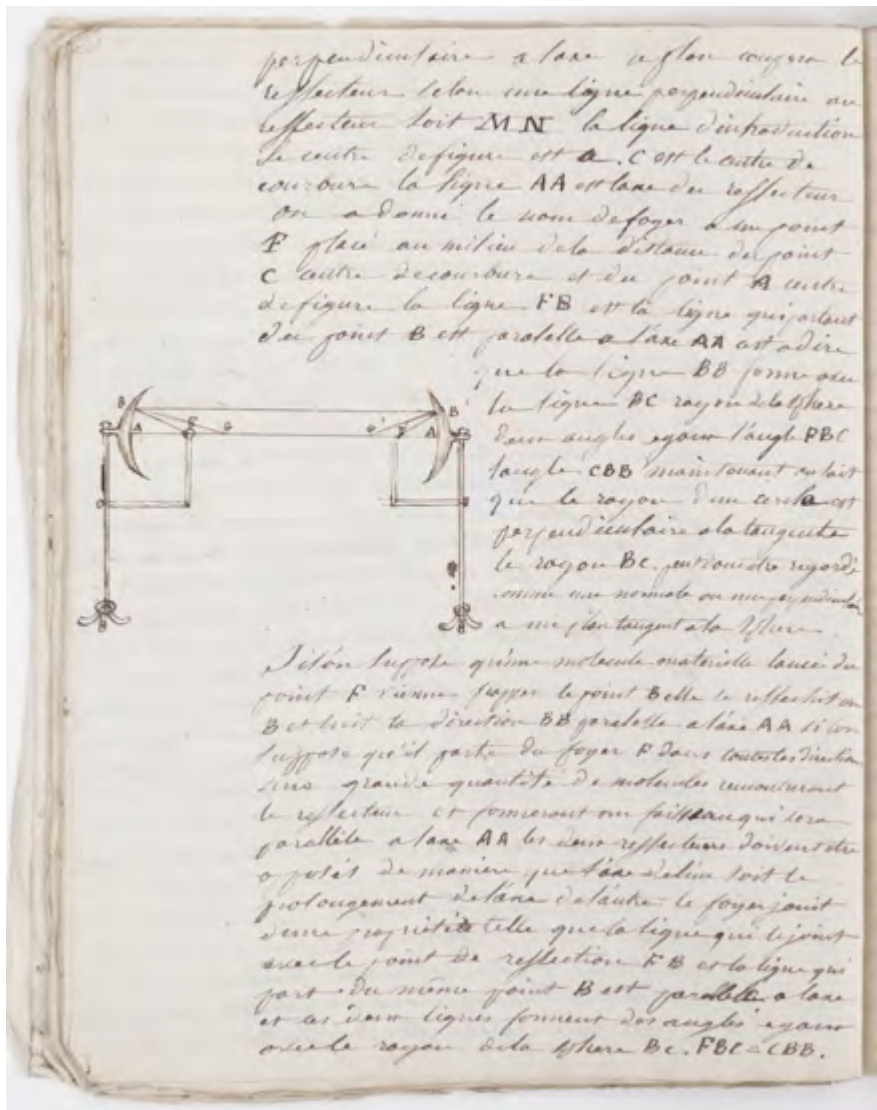 perpendiculaire a laxe et lon coupera le
reflecteur selon une ligne perpendiculaire au
reflecteur soit MN la ligne d'introduction
le centre de figure est a. C est le centre de
courbure la ligne AA est laxe du reflecteur
on a donné le nom de foyer a un point
F placé au milieu de la distance du point
C centre de courbure et du point A centre
de figure la ligne FB est la ligne qui partant
du point B est paralelle a l'axe AA cest adire
que la ligne BB forme avec
la ligne BC rayon de la sphere
deux angles egaux l'angle FBC
langle CBB maintenant on sait
que le rayon d'un cercle est
perpendiculaire a la tangente
le rayon BC. peut donc etre regardé
comme une normale ou une perpendiculaire
a un plan tangent a la sphere
B A C G G' F A B
Si lón suppose qu'une molecule materielle lancée du
point F vienne frapper le point B elle se reflechit en
B et suit la direction BB paralelle a l'axe AA si lon
suppose qu'il parte du foyer F dans toutes les direction
une grande quantité de molecules rencontreront
le reflecteur et formeront un faisseau qui sera
parallèle a laxe AA les deux reflecteurs doivent etre
oposés de maniere que l'axe de lun soit le
prolongement de l'axe de l'autre le foyer jouit
d'une propriétée telle que la ligne qui le joint
avec le point de reflection FB et la ligne qui
part du même point B est parallelle a laxe
et ces deux lignes forment des angles egaux
avec le rayon de la sphere BC. FBC = CBB.